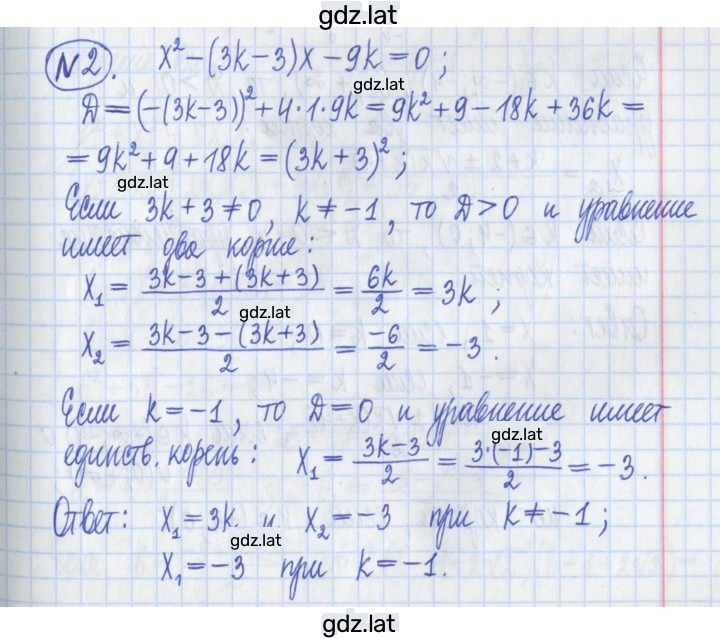 gdz.lat
N2. x² - (3k - 3)x - 9k = 0;
gdz.lat
D = (-(3k-3))² + 4·1·9k = 9k² + 9 - 18k + 36k =
= 9k² + 9 + 18k = (3k + 3)²;
gdz.lat
Если 3k + 3 ≠ 0, k ≠ -1, то D > 0 и уравнение
имеет два корня:
x₁ = (3k - 3 + (3k + 3))/2 = 6k/2 = 3k;
gdz.lat
x₂ = (3k - 3 - (3k + 3))/2 = -6/2 = -3.
Если k = -1, то D = 0 и уравнение имеет
gdz.lat
единств. корень: x₁ = (3k - 3)/2 = (3·(-1) - 3)/2 = -3.
Ответ: x₁ = 3k и x₂ = -3 при k ≠ -1;
gdz.lat
x₁ = -3 при k = -1.
gdz.lat